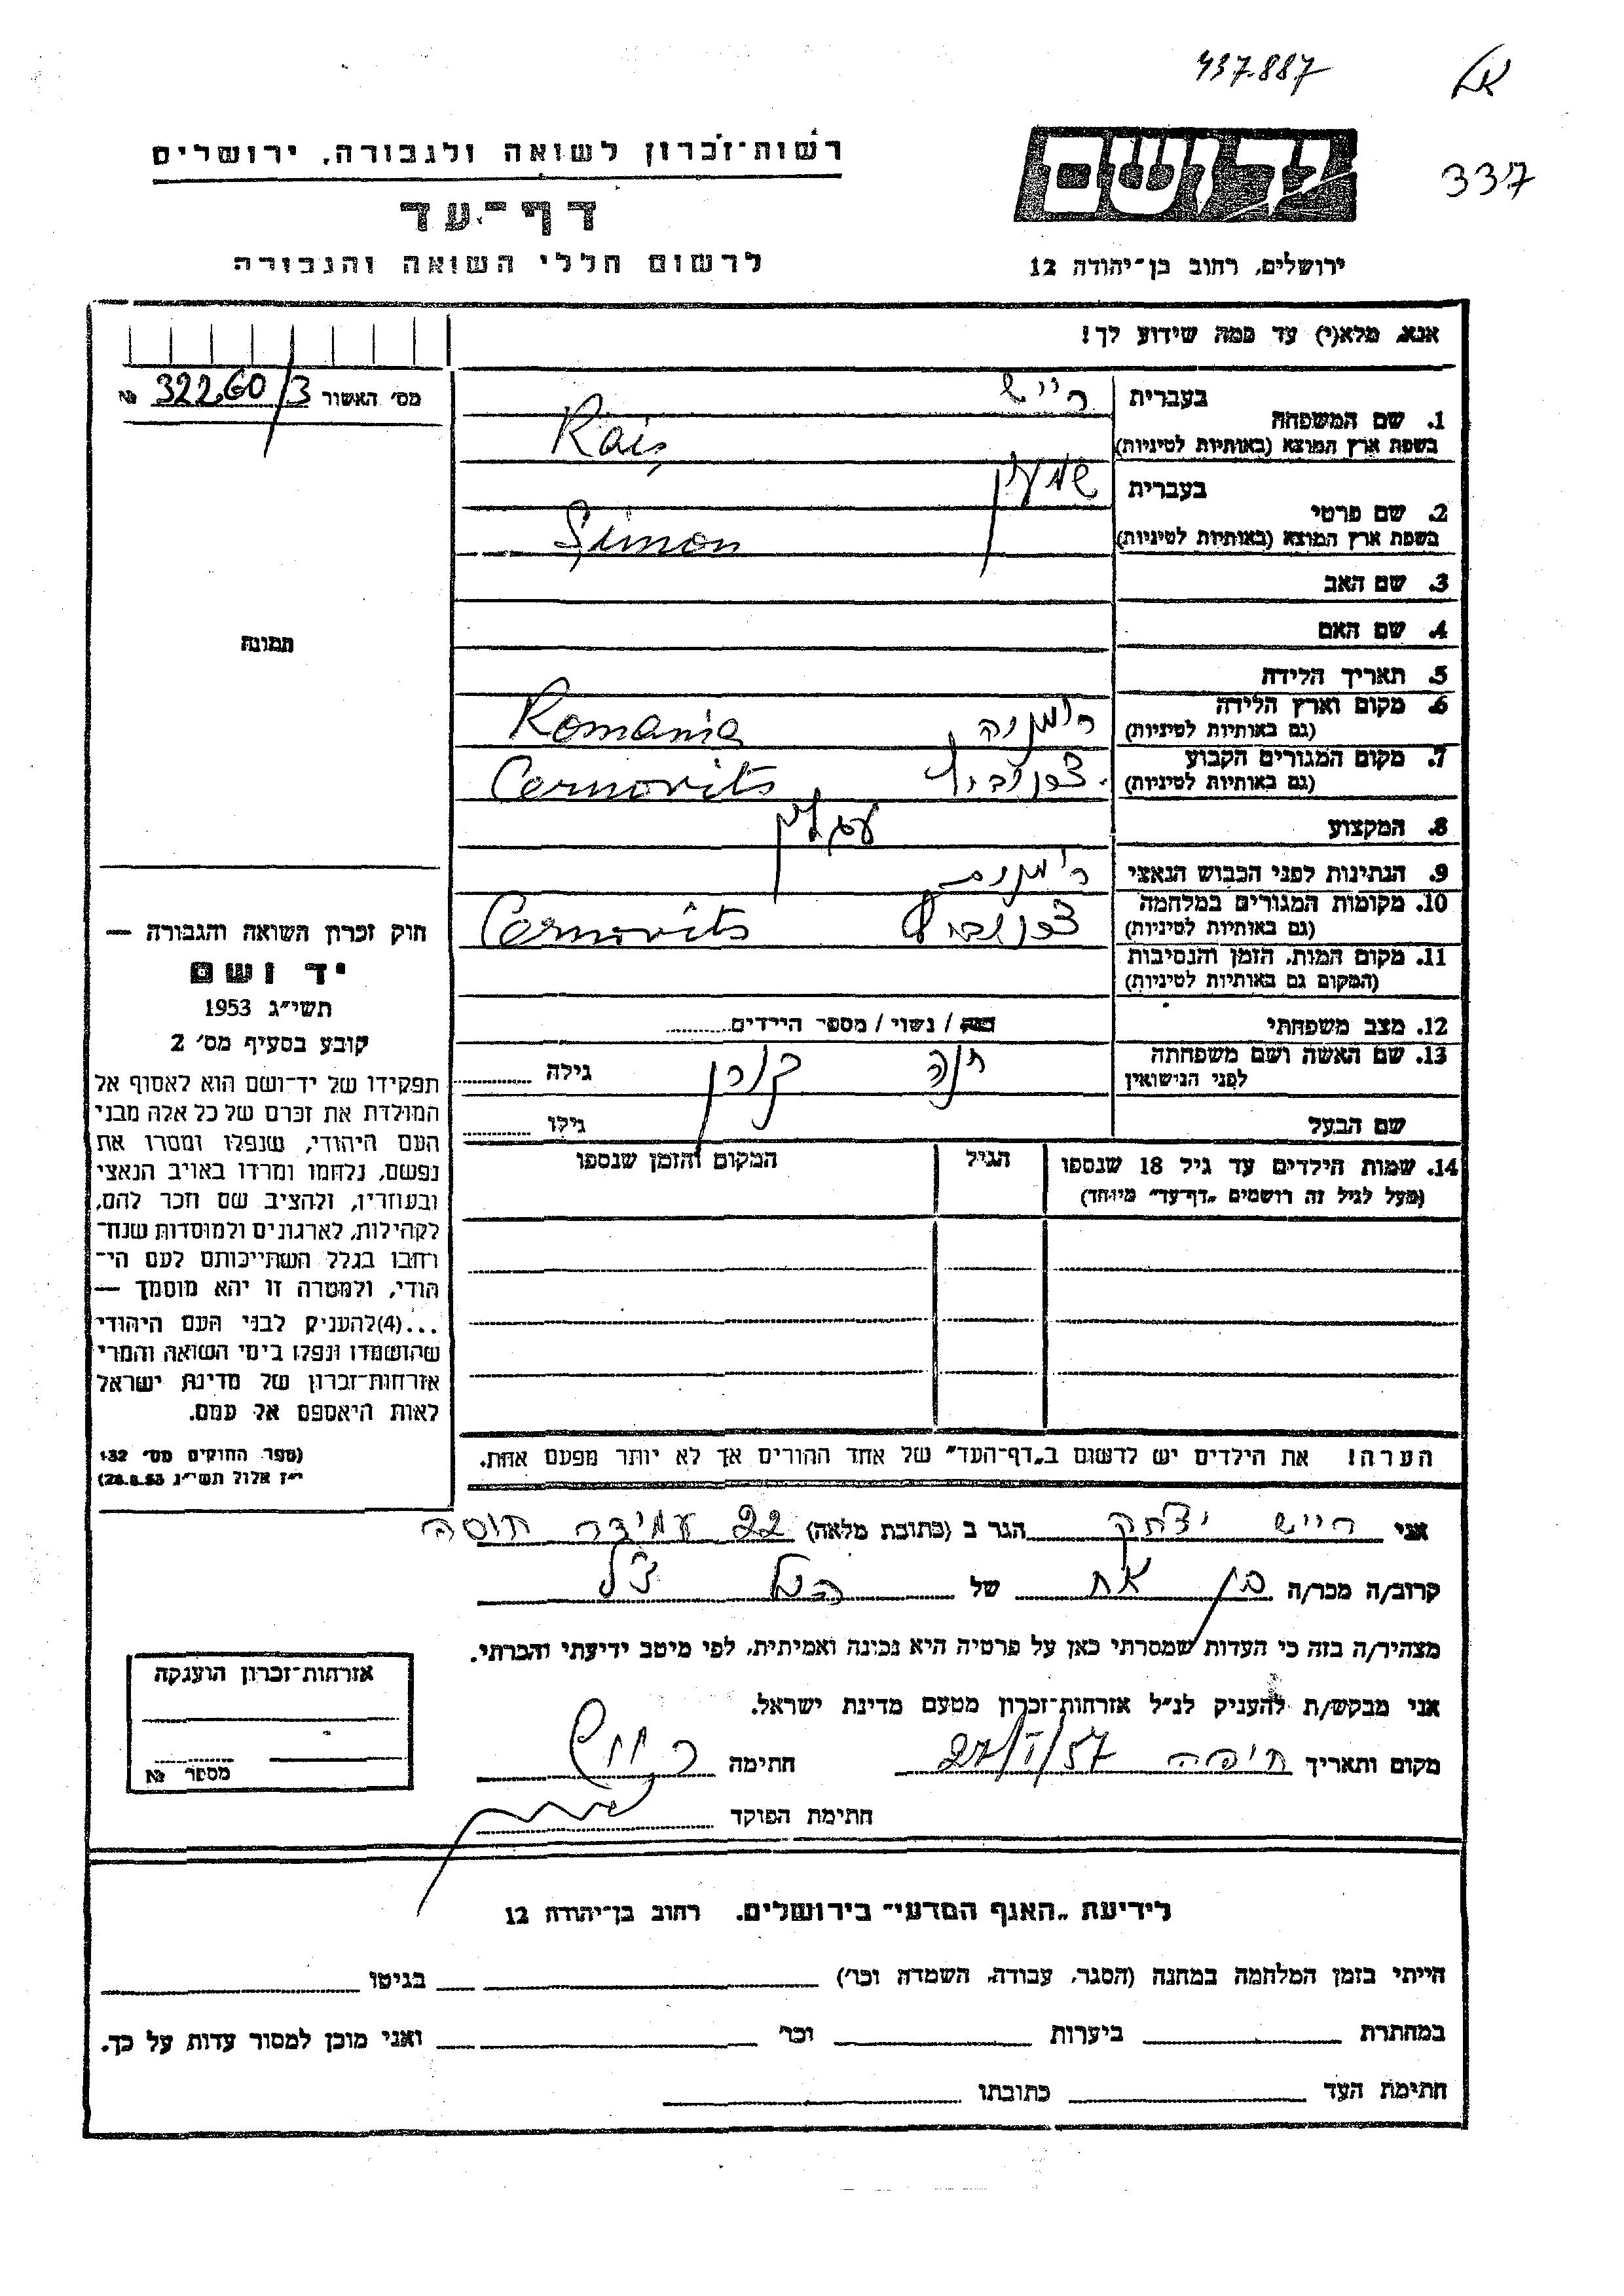 437.887
337
יד ושם
רשות־זכרון לשואה ולגבורה, ירושלים
דף־עד
לרשום חללי השואה והגבורה
ירושלים, רחוב בן־יהודה 12
אנא, מלא(י) עד כמה שידוע לך!
מס׳ האשור 32260/3 №
1. שם המשפחה
בעברית רייש
בשפת ארץ המוצא (באותיות לטיניות) Raiș
2. שם פרטי
בעברית שמעון
בשפת ארץ המוצא (באותיות לטיניות) Șimon
3. שם האב
4. שם האם
5. תאריך הלידה
6. מקום וארץ הלידה
(גם באותיות לטיניות) רומניה Romania
7. מקום המגורים הקבוע
(גם באותיות לטיניות) צרנוביץ Cernovits
8. המקצוע עגלון
9. הנתינות לפני הכבוש הנאצי
10. מקומות המגורים במלחמה
(גם באותיות לטיניות) צרנוביץ Cernovits
11. מקום המות, הזמן והנסיבות
(המקום גם באותיות לטיניות)
12. מצב משפחתי / נשוי / מספר הילדים
13. שם האשה ושם משפחתה
לפני הנישואין חנה גילה
שם הבעל גילו
14. שמות הילדים עד גיל 18 שנספו
(מעל לגיל זה רושמים „דף־עד״ מיוחד)
הגיל
המקום והזמן שנספו
הערה! את הילדים יש לרשום ב„דף־העד״ של אחד ההורים אך לא יותר מפעם אחת.
תמונה
חוק זכרון השואה והגבורה —
יד ושם
תשי״ג 1953
קובע בסעיף מס׳ 2
תפקידו של יד־ושם הוא לאסוף אל
המולדת את זכרם של כל אלה מבני
העם היהודי, שנפלו ומסרו את
נפשם, נלחמו ומרדו באויב הנאצי
ובעוזריו, ולהציב שם וזכר להם,
לקהילות, לארגונים ולמוסדות שנח־
רחבו בגלל השתייכותם לעם הי־
הודי, ולמטרה זו יהא מוסמך —
...(4) להעניק לבני העם היהודי
שהושמדו ונפלו בימי השואה והמרי
אזרחות־זכרון של מדינת ישראל
לאות היאספם אל עמם.
(ספר החוקים מס׳ 132
י״ז אלול תשי״ג 28.8.53)
אני רייש יצחק הגר ב (כתובת מלאה) 22 עמידר
קרוב/ה מכר/ה בן אח של הנ״ל ז״ל
מצהיר/ה בזה כי העדות שמסרתי כאן על פרטיה היא נכונה ואמיתית, לפי מיטב ידיעתי והכרתי.
אני מבקש/ת להעניק לנ״ל אזרחות־זכרון מטעם מדינת ישראל.
מקום ותאריך חיפה 27/I/57 חתימה רייש
חתימת הפוקד
אזרחות־זכרון הוענקה
מספר №
לידיעת „האגף המדעי״ בירושלים, רחוב בן־יהודה 12
הייתי בזמן המלחמה במחנה (הסגר, עבודה, השמדה וכו׳) בגיטו
במחתרת ביערות וכו׳ ואני מוכן למסור עדות על כך.
חתימת העד כתובתו